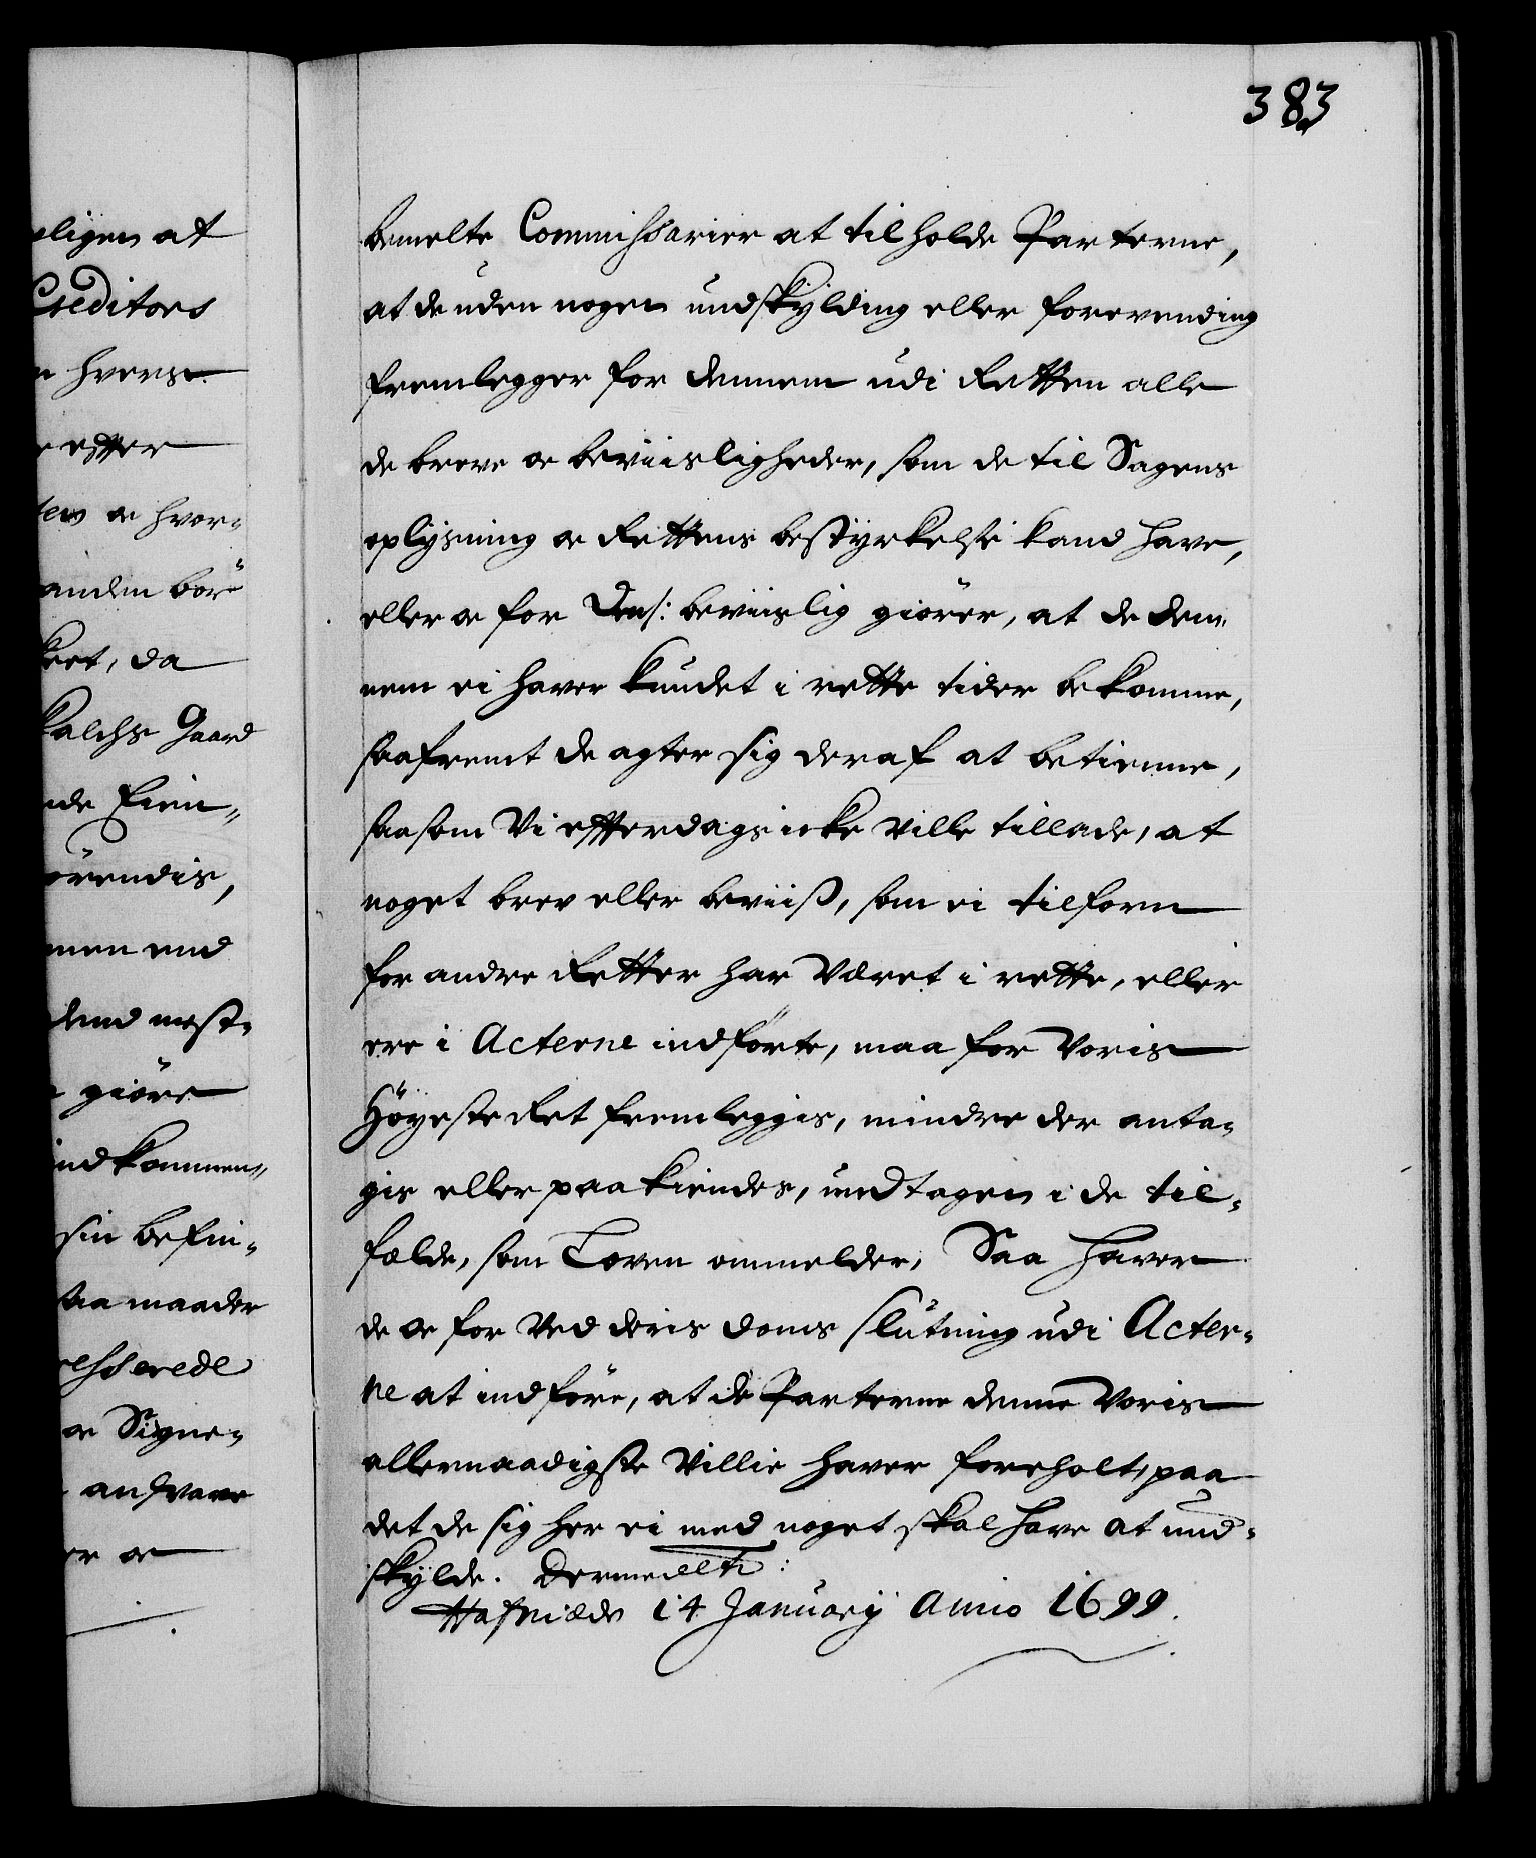 383
eligen at
Creditors
n hverse
r efter
ten oc hvor-
anden bör
keet, da
kalchs Gaard
nde Eien-
örendis,
men end
dend nest-
giöre
indkommen-
sin befin-
saa maader
resserede
oc Signe-
ansvare
er oc
bemelte Commissarier at tilholde Parterne,
at de uden nogen undskylding eller forevending
fremlegger for dennem udi Retten alle
de breve oc beviisligheder, som de til Sagens
oplysning oc Rettens bestyrkelse kand have,
eller oc for Dem: beviislig giörer, at de den-
nem ei haver kundet i rette tider bekomme,
saafremt de agter sig deraf at betienne,
saasom Vi efterdags icke ville tillade, at
noget brev eller beviiß, som ei tilforn
for andre Retter har været i rette, eller
ere i Acterne indförte, maa for Voris
Höyeste Ret fremleggis, mindre der anta-
gis eller paakiendes, undtagen i de til-
felde, som Loven ommelder, Saa haver
de oc for ved deris doms slutning udi Acter-
ne at indföre, at de Parterne denne Voris
allernaadigste Villie haver foreholt, paa
det de sig her ei med noget skal have at und-
skylde. Dermed etc:
Hafniæ den 14 January Anno 1699.